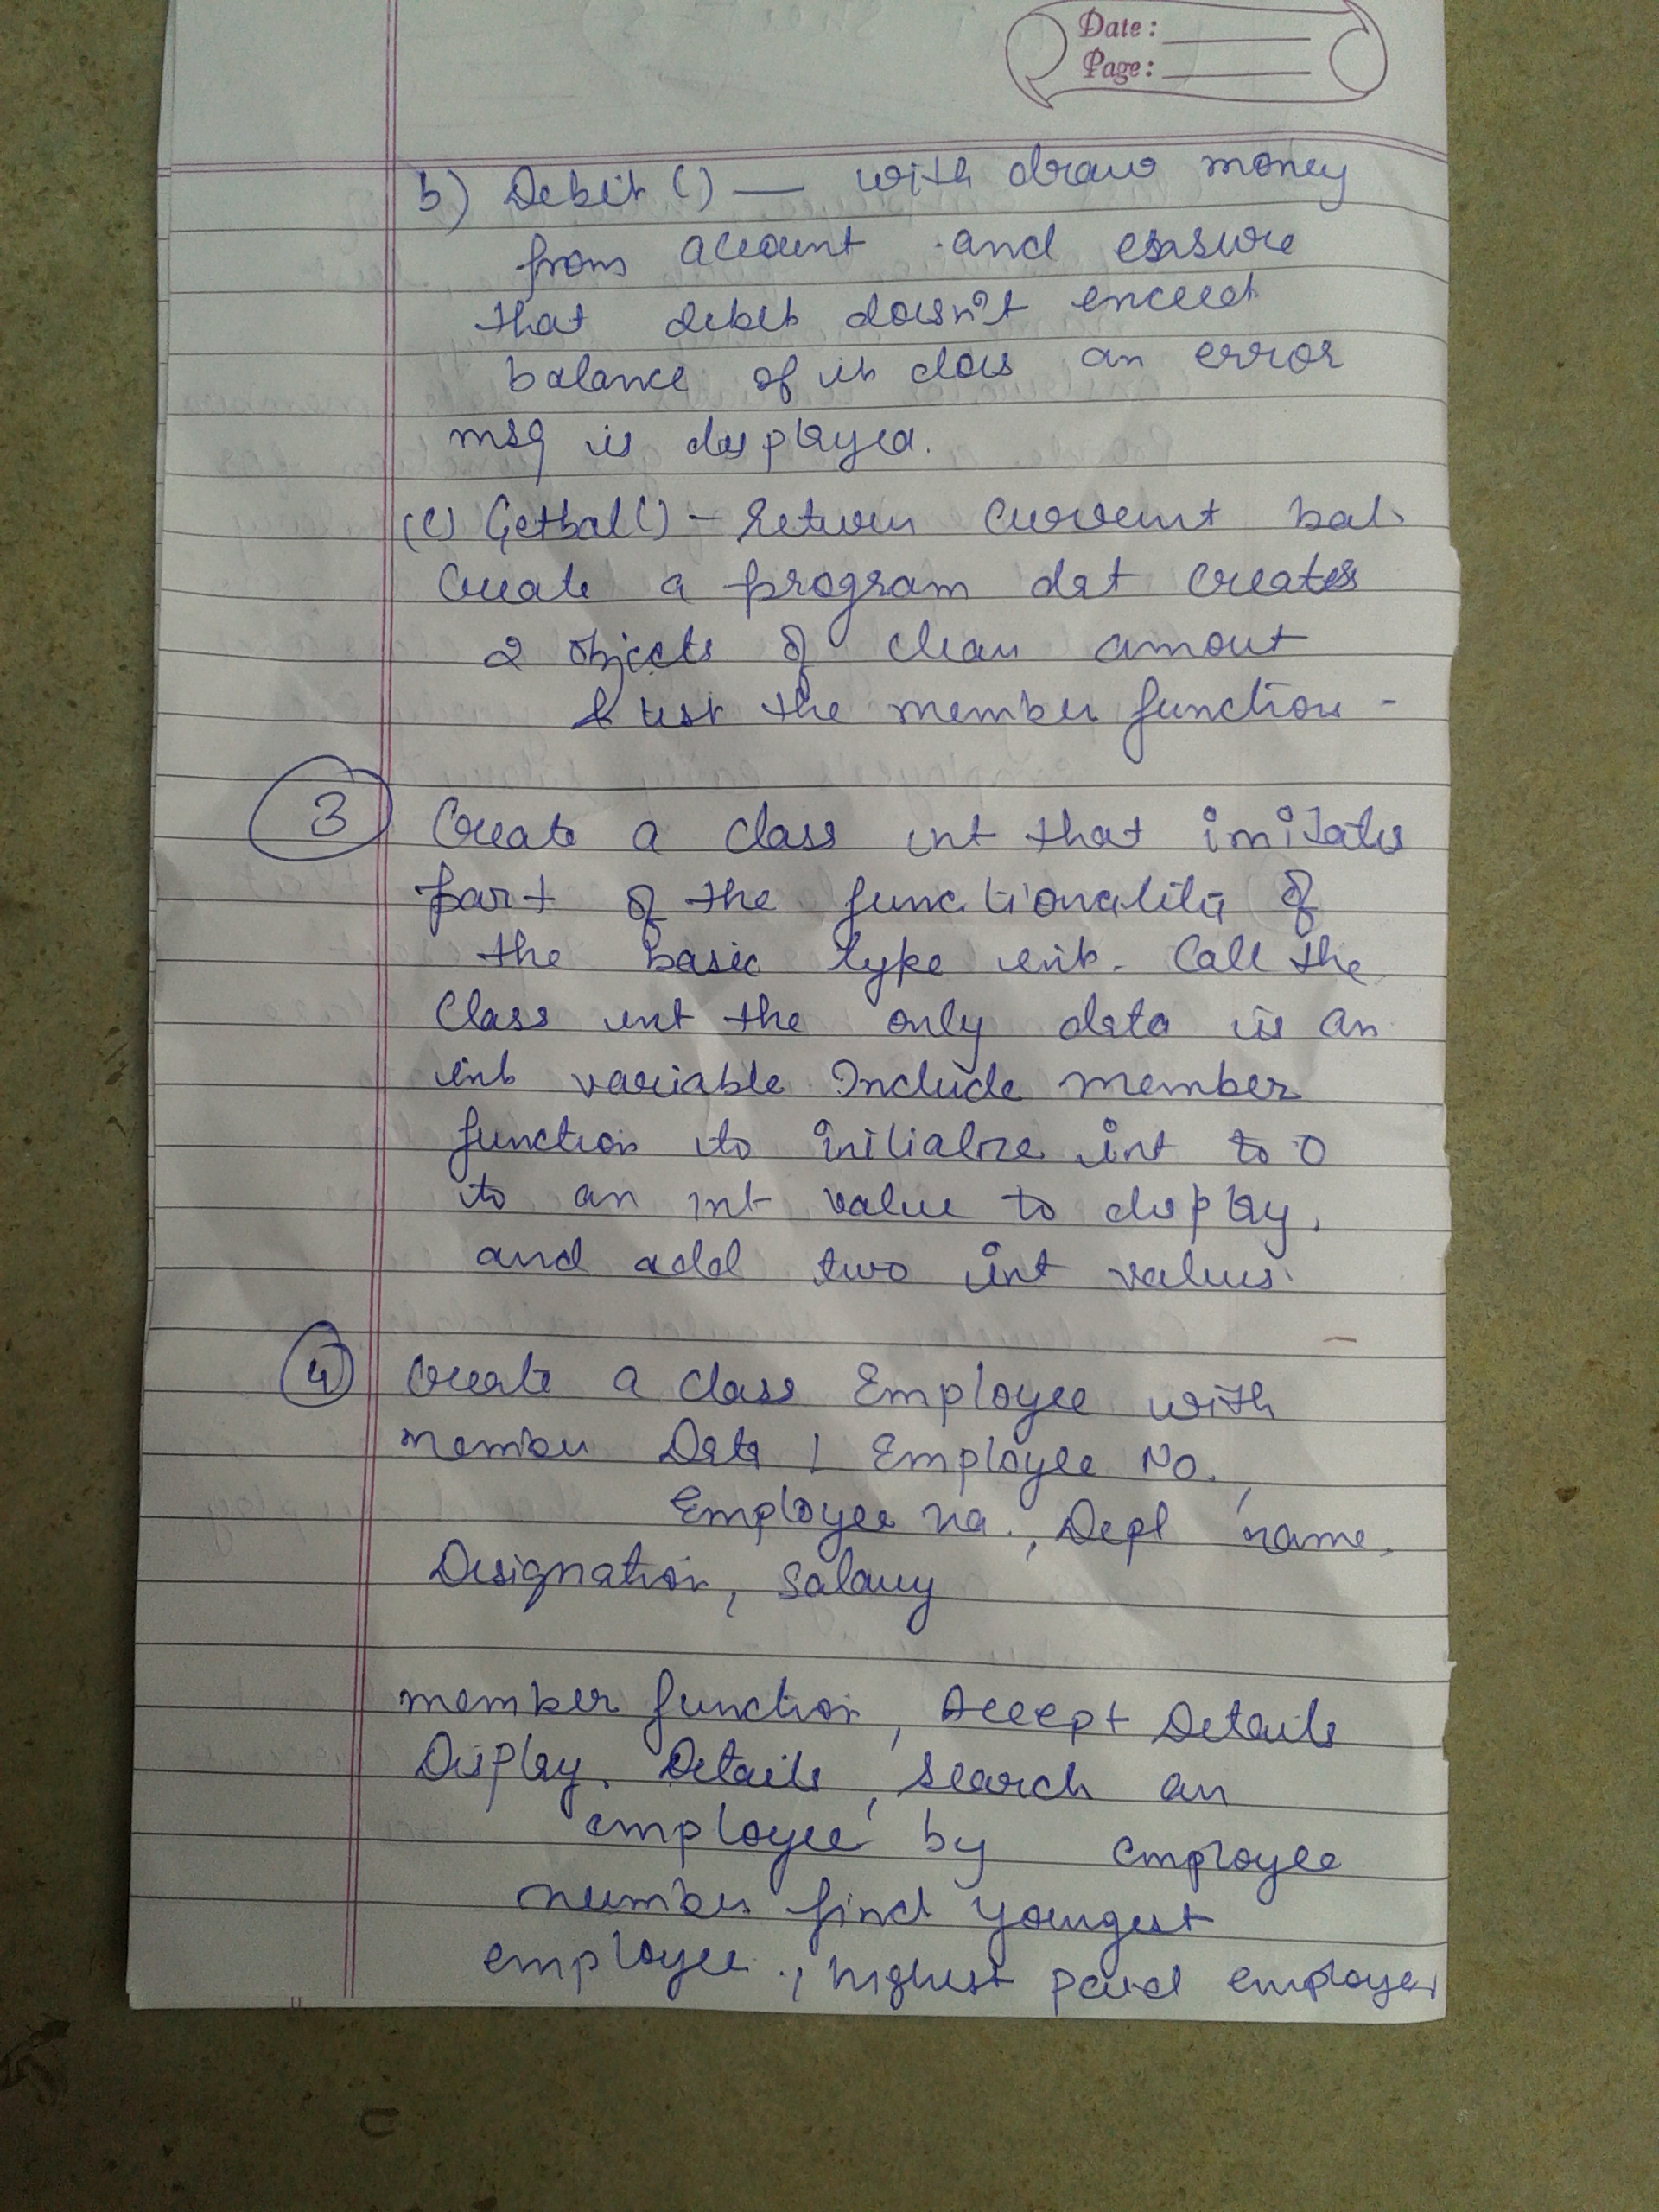 Date :
Page :
b) Debit () — with draw money
from account and ensure
that debit doesn't exceed
balance if it does an error
msg is displayed.
(c) Getbal() - Return Current bal.
Create a program dat creates
2 objects of class amout
& test the member function -
3 Create a class int that imitates
part of the functionality of
the basic type int. Call the
Class int the only data is an
int variable Include member
function to initialize int to 0
to an int value to display,
and add two int values.
4 Create a class Employee with
member Data | Employee No.,
Employee na., Dept name,
Designation, Salary
member function, Accept Details
Display. Details, Search an
employee by employee
number find youngest
employee., highest paid employee